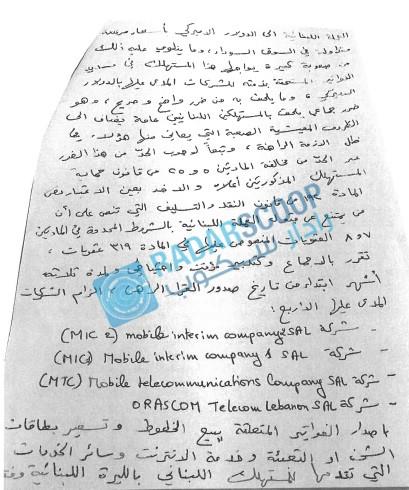 العملة اللبنانية الى الدولار الاميركي بأسعار مرتفعة
متداولة في السوق السوداء، وما ينطوي عليه ذلك
من صعوبة كبيرة يواجهها هذا المستهلك في تسديد
الفواتير المستحقة بذمته للشركات المدعى عليها بالدولار
الاميركي، وما يلحق به من ضرر واضح وصريح، وهو
ضرر جماعي يلحق بالمستهلكين اللبنانيين عامة يضاف الى
الظروف المعيشية الصعبة التي يعاني منها هؤلاء في
ظل الازمة الراهنة، وتبعاً لوجوب الحدّ من هذا الضرر
عبر الحدّ من مخالفة المادتين ٥ و٢٥ من قانون حماية
المستهلك المذكورتين أعلاه والاخذ بعين الاعتبار نص
المادة ١٩٢ من قانون النقد والتسليف التي تنص على أن
من يمتنع عن قبول العملة اللبنانية بالشروط المحددة في المادتين
٧ و٨ العقوبات المنصوص عليها في المادة ٣١٩ عقوبات،
تقرر بالاجماع وكتدبير مؤقت واحتياطي ولمدة ثلاثة
أشهر ابتداءً من تاريخ صدور القرار الراهن، الزام الشركات
المدعى عليها الاربع:
- شركة (MIC 2) mobile interim company 2 SAL
- شركة (MIC1) Mobile interim company 1 SAL
- شركة (MTC) Mobile telecommunications Company SAL
- شركة ORASCOM Telecom Lebanon SAL
باصدار الفواتير المتعلقة ببيع الخطوط وتسعير بطاقات
الشحن او التعبئة وخدمة الانترنت وسائر الخدمات
التي تقدمها للمستهلك اللبناني بالليرة اللبنانية
RADARSCOOP
رادار سكوب